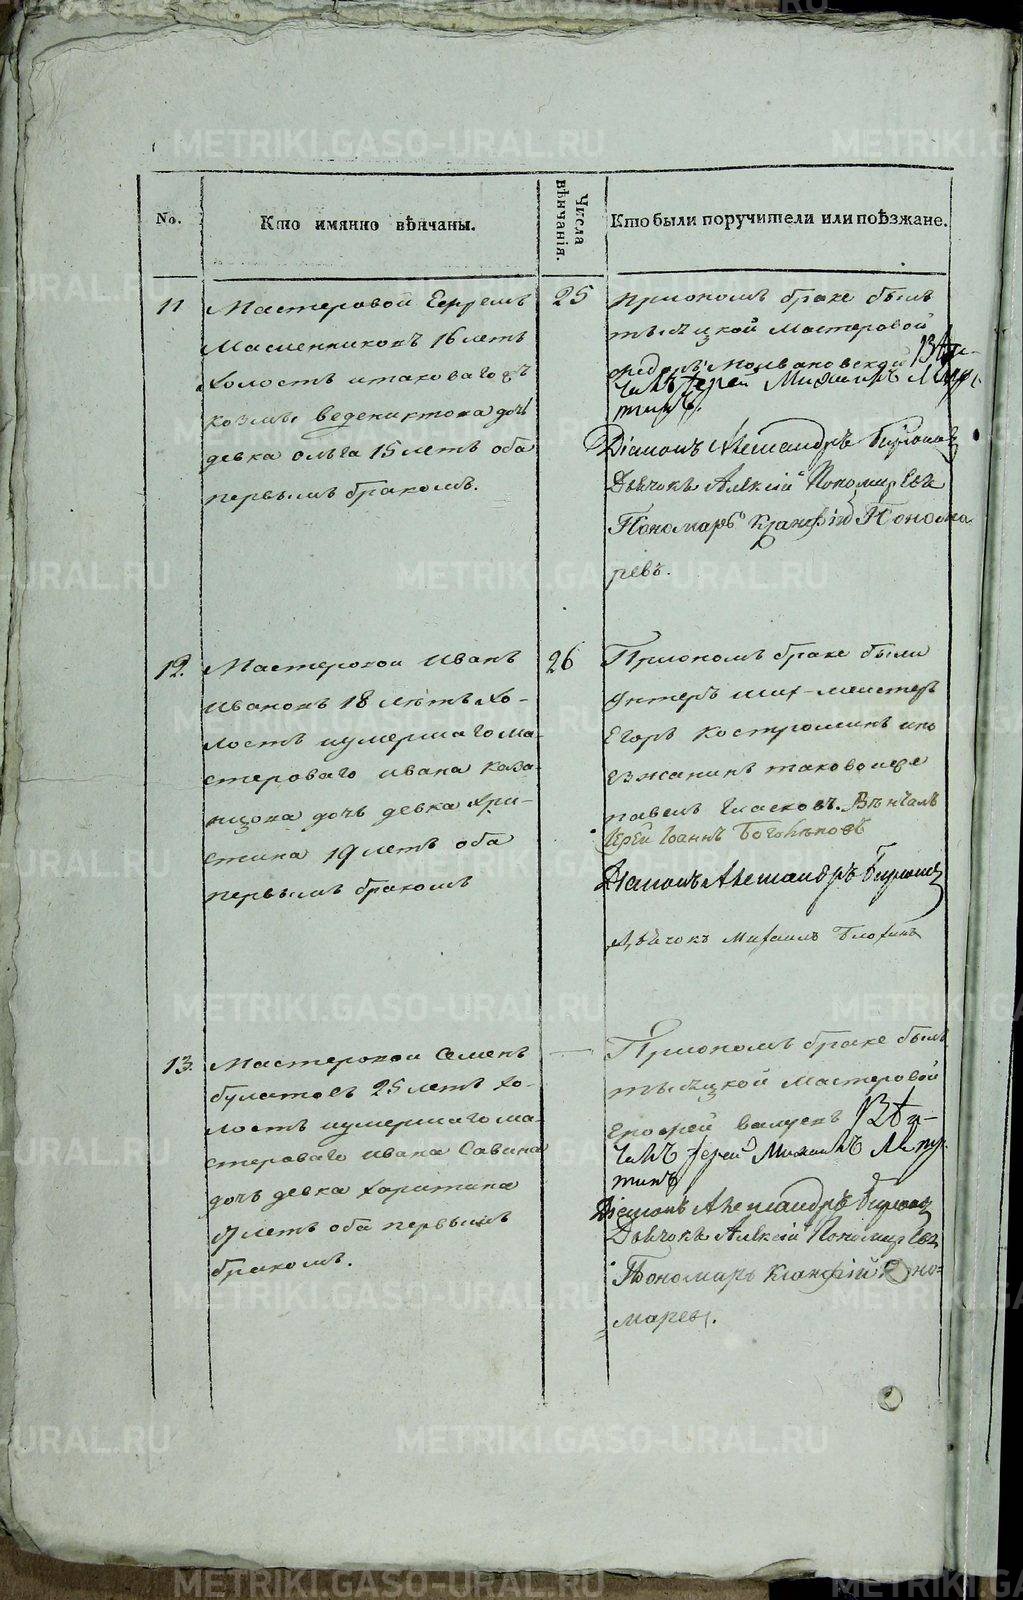 No.
Кто имянно вѣнчаны.
Числа вѣнчанія.
Кто были поручители или поѣзжане.
11
Мастеровой Ефремъ
Масленниковъ 16 летъ
холостъ итаковагожъ
козмы ведениктова дочь
девка олга 15 летъ оба
первымъ бракомъ.
25
приономъ браке былъ
тысяцкой мастеровой
федоръ
чалъ Іерей Михаилъ
тинъ.
Діаконъ Александръ Бирюков
Дьячокъ Алексій Пономаревъ
Пономарь Понома
ревъ.
12.
Мастеровои Иванъ
Ивановъ 18 летъ хо-
лостъ иумершаго ма-
стероваго ивана каза-
нцова дочь девка Хри-
стина 19 летъ оба
первымъ бракомъ
26
Приономъ браке были
унтеръ шихъ-меистеръ
Егоръ Костроминъ ипо
езжанинъ таковоиже
павелъ Вѣнчалъ
Іерей Іоаннъ
Діаконъ Александръ Бирюков
Дьячокъ Михаилъ Блохинъ
13.
Мастеровои Семенъ
булатовъ 25 летъ хо-
лостъ иумершаго ма-
стероваго ивана Савина
дочь девка Харитина
17 летъ оба первымъ
бракомъ.
—
Приономъ браке былъ
тысяцкой мастеровой
чалъ Іерей Михаилъ
тинъ
Діаконъ Александръ Бирюков
Дьячокъ Алексій Пономаревъ
Пономарь Поно-
маревъ.
METRIKI.GASO-URAL.RU